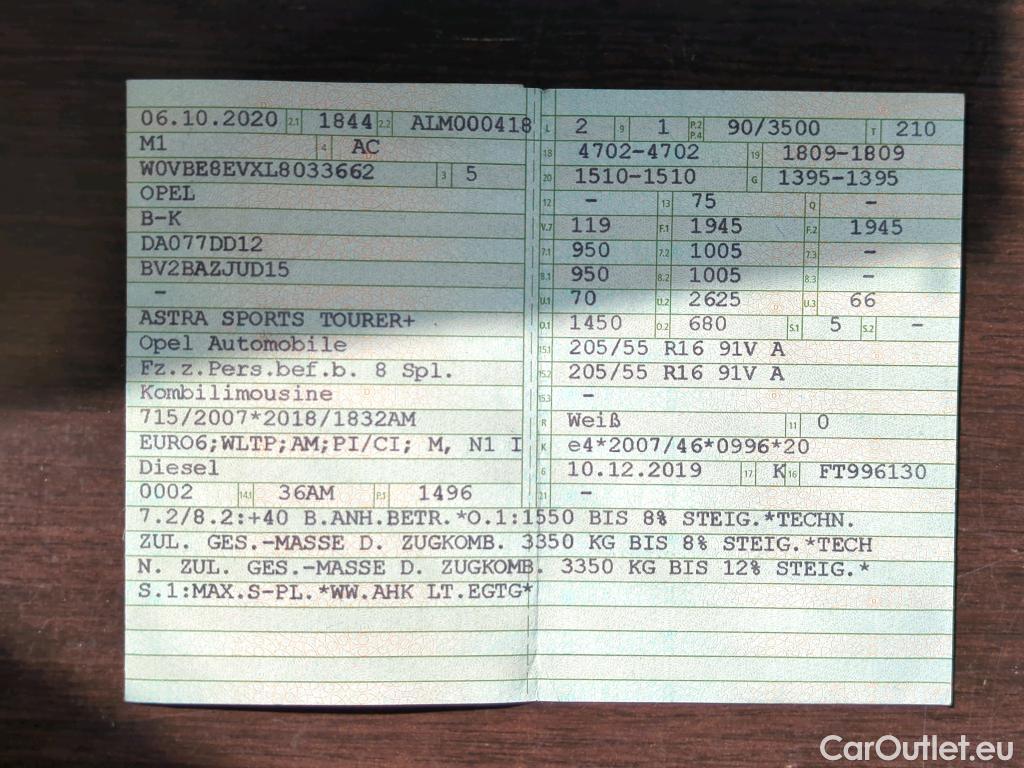 06.10.2020 2.1 1844 2.2 ALM000418
M1 4 AC
W0VBE8EVXL8033662 3 5
OPEL
B-K
DA077DD12
BV2BAZJUD15
–
ASTRA SPORTS TOURER+
Opel Automobile
Fz.z.Pers.bef.b. 8 Spl.
Kombilimousine
715/2007*2018/1832AM
EURO6;WLTP;AM;PI/CI; M, N1 I
Diesel
0002 14.1 36AM P.1 1496
L 2 9 1 P.2 P.4 90/3500 T 210
18 4702-4702 19 1809-1809
20 1510-1510 G 1395-1395
12 – 13 75 Q –
V.7 119 F.1 1945 F.2 1945
7.1 950 7.2 1005 7.3 –
8.1 950 8.2 1005 8.3 –
U.1 70 U.2 2625 U.3 66
O.1 1450 O.2 680 S.1 5 S.2 –
15.1 205/55 R16 91V A
15.2 205/55 R16 91V A
15.3 –
R Weiß 11 0
K e4*2007/46*0996*20
6 10.12.2019 17 K 16 FT996130
21 –
7.2/8.2:+40 B.ANH.BETR.*O.1:1550 BIS 8% STEIG.*TECHN.
ZUL. GES.-MASSE D. ZUGKOMB. 3350 KG BIS 8% STEIG.*TECH
N. ZUL. GES.-MASSE D. ZUGKOMB. 3350 KG BIS 12% STEIG.*
S.1:MAX.S-PL.*WW.AHK LT.EGTG*
CarOutlet.eu